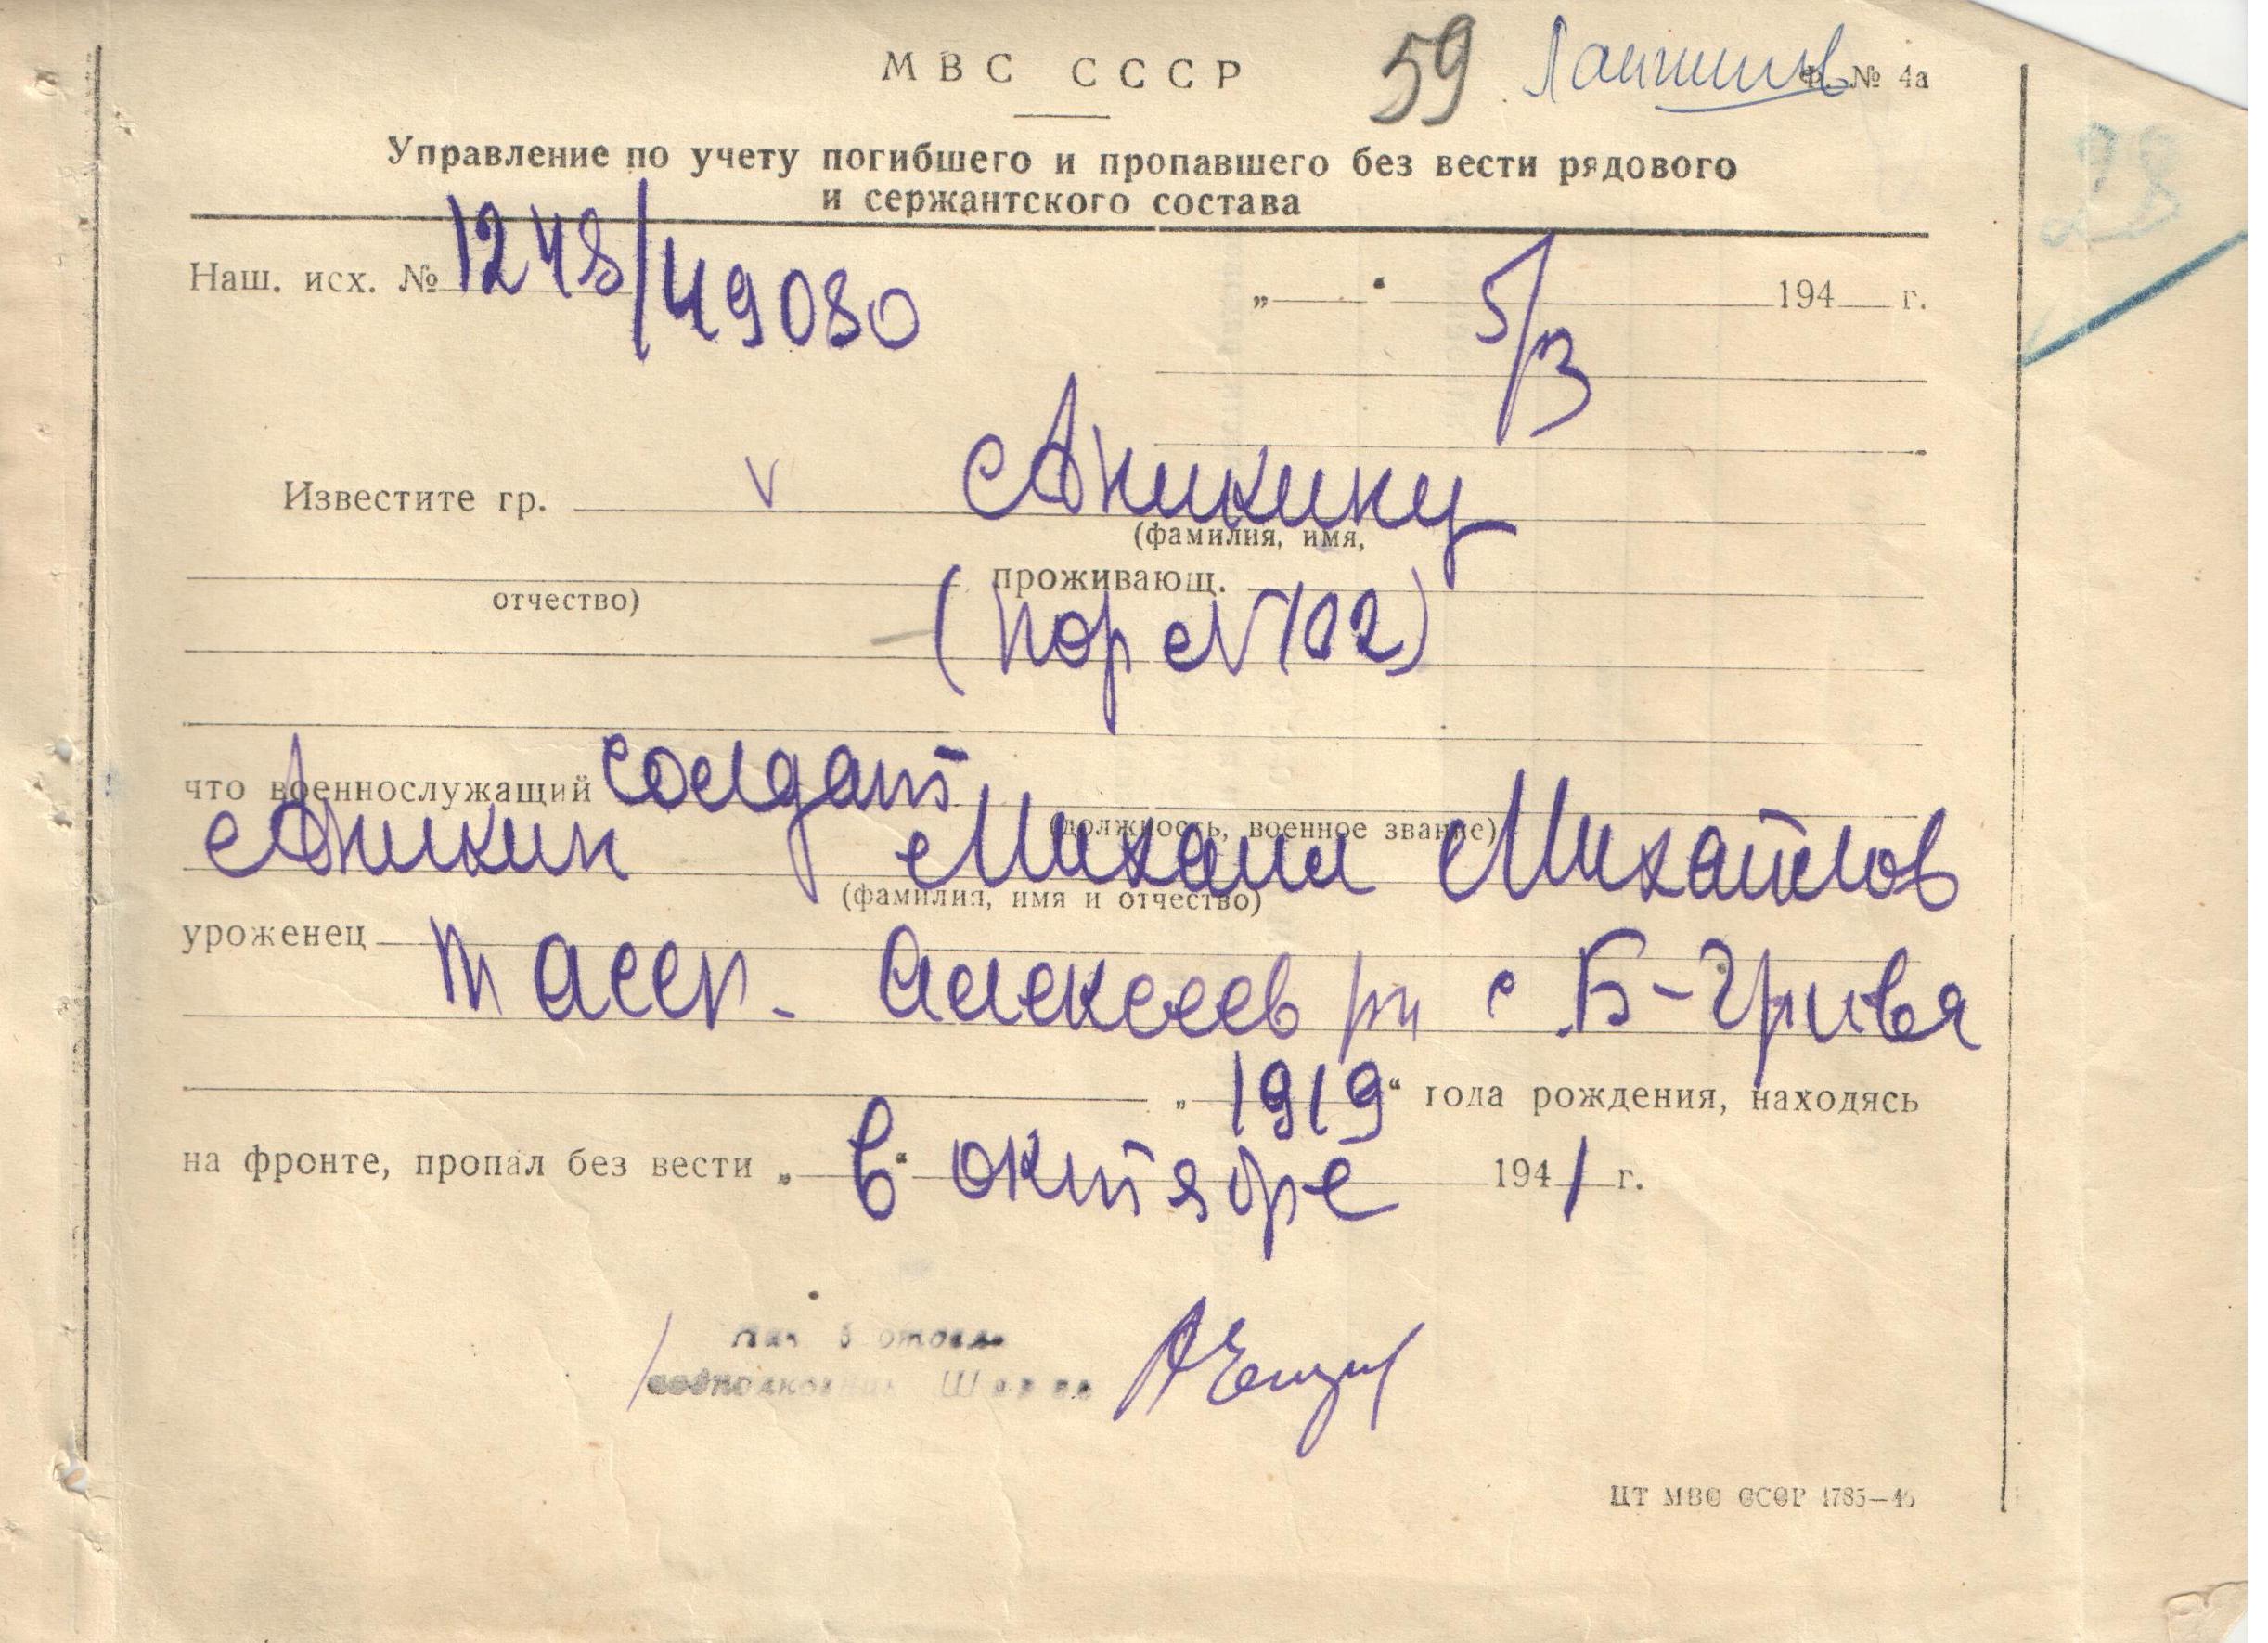 МВС СССР
59
Ф. № 4а
Управление по учету погибшего и пропавшего без вести рядового
и сержантского состава
Наш. исх. № 1248/49080 „ “ 5/3 194 г.
Известите гр. V Аникину
(фамилия, имя,
отчество) проживающ.
(пор №102)
что военнослужащий солдат
(должность, военное звание)
Аникин Михаил Михайлов
(фамилия, имя и отчество)
уроженец
Тасср. Алексеев рн с Б-Грива
„ 1919 “ года рождения, находясь
на фронте, пропал без вести „ в “ октябре 1941 г.
отдела
подполковник
ЦТ МВС СССР 1785—46